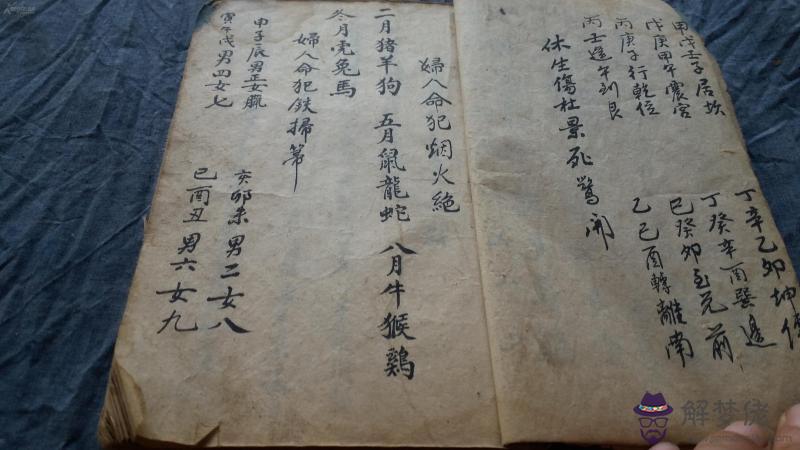 甲戊壬子居坎 丁辛乙卯坤
戊庚甲午震宮 丁癸辛酉巽邊
丙庚子行乾位 巳癸卯至兄前
丙壬逢午到艮 乙巳酉轉離南
休生傷杜景死驚開
婦人命犯烟火絶
二月猪羊狗 五月鼠龍蛇 八月牛猴鷄
冬月虎兔馬
婦人命犯鉄掃箒
甲子辰男正女臘 亥卯未男二女八
寅午戌男四女七 巳酉丑男六女九
解梦佬